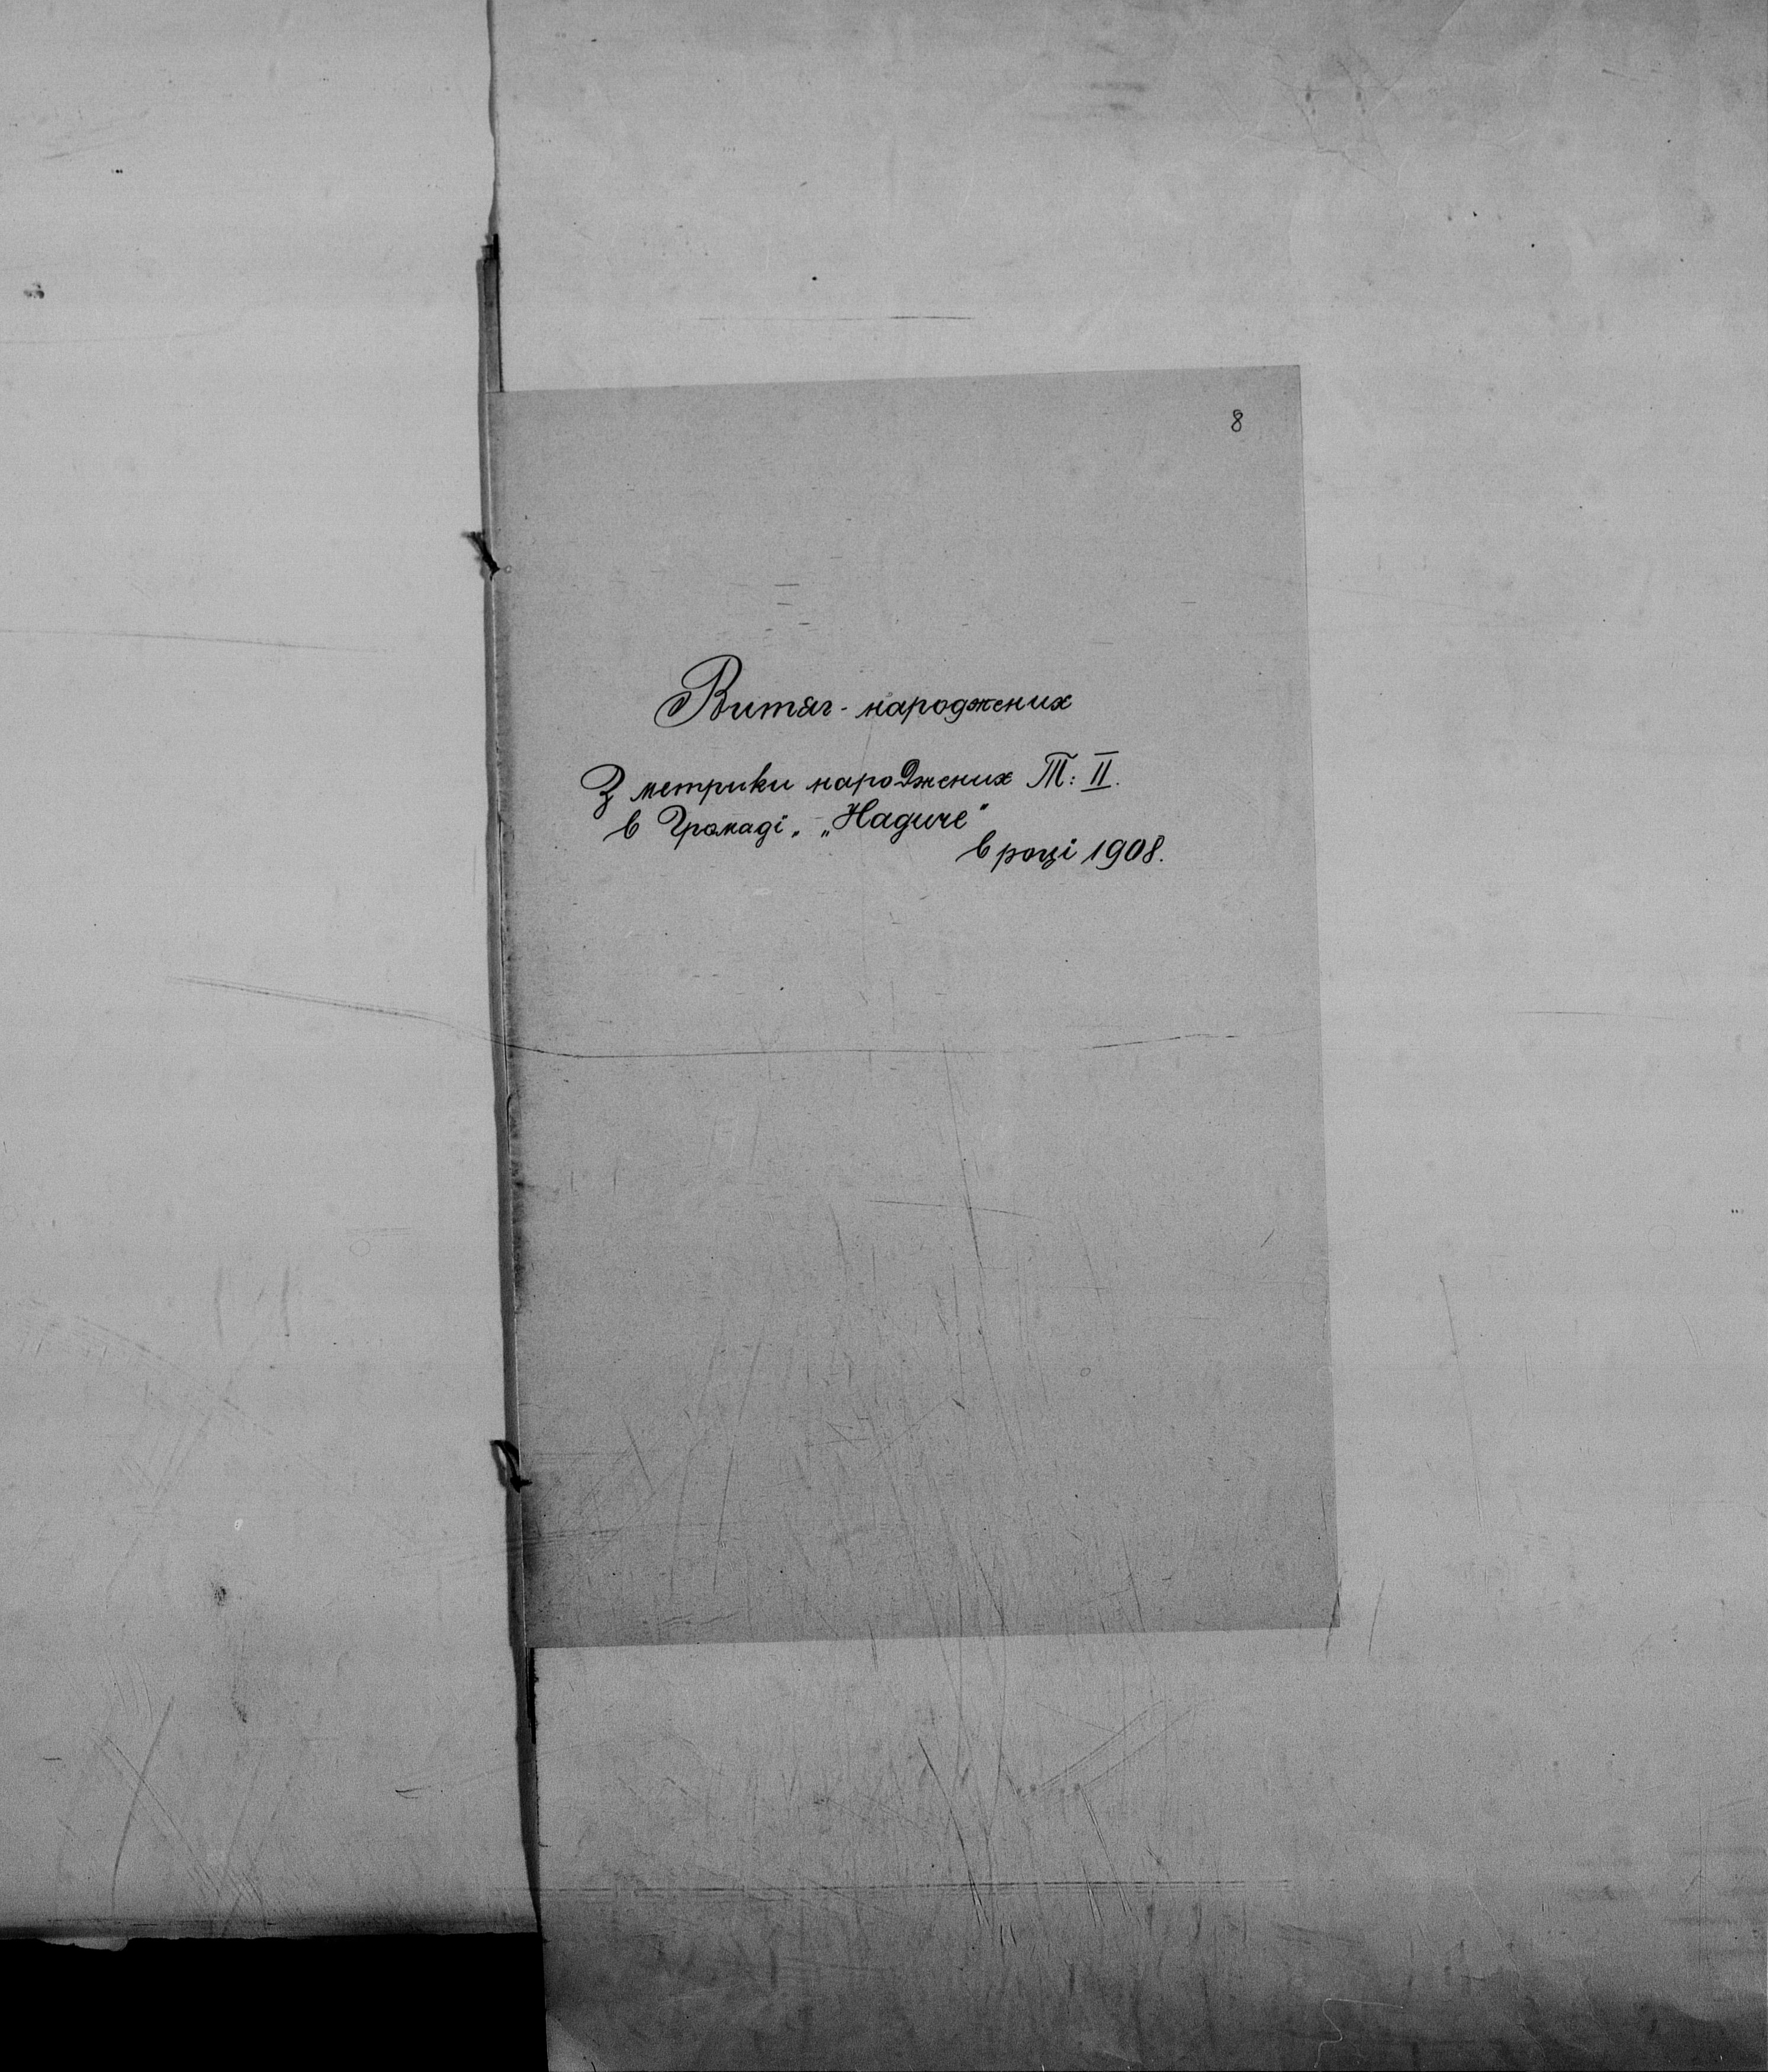 8
Витяг - народжених
З метрики народжених Т: II.
в Громаді. „Надиче"
в році 1908.